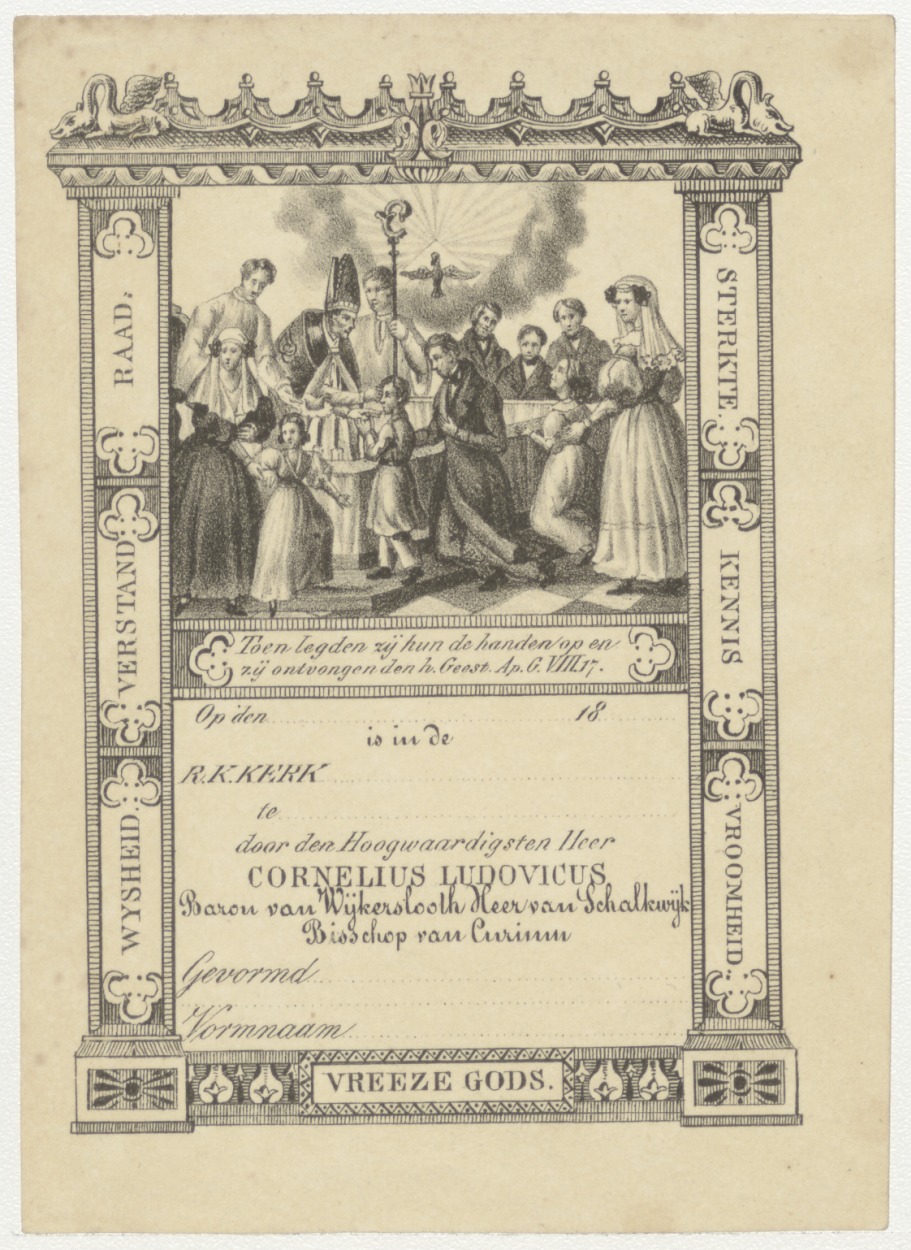 RAAD,
VERSTAND
WYSHEID.
STERKTE.
KENNIS
VROOMHEID.
Toen legden zij hun de handen op en
zij ontvongen den h. Geest. Ap. G. VIII. 17.
Op den 18
is in de
R.K. KERK
te
door den Hoogwaardigsten Heer
CORNELIUS LUDOVICUS
Baron van Wijkerslooth Heer van Schalkwijk
Bisschop van Curium
Gevormd
Vormnaam
VREEZE GODS.